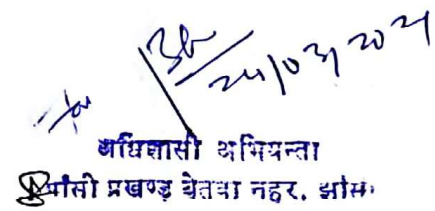 24/03/2021
अधिशासी अभियन्ता
झाँसी प्रखण्ड बेतवा नहर, झाँसी